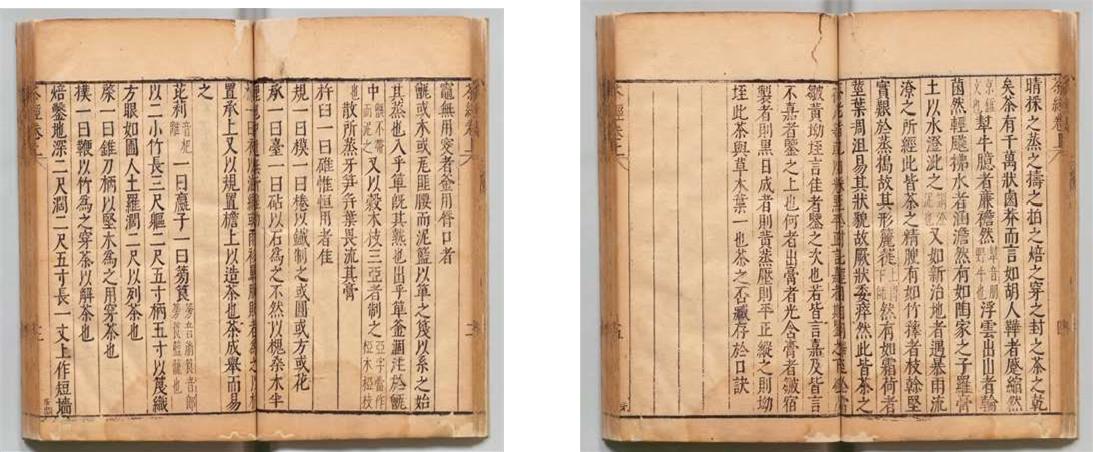 竈無用突者釜用脣口者
甑或木或瓦匪腰而泥籃以箄之篾以系之始
其蒸也入乎箄既其熟也出乎箄釜涸注於甑
中甑不帶而泥之又以榖木枝三亞者制之亞字當作椏木椏枝
也散所蒸牙笋并葉畏流其膏
杵臼一曰碓惟恒用者佳
規一曰模一曰棬以鐵制之或圓或方或花
承一曰臺一曰砧以石爲之不然以槐桑木半
置承上又以規置檐上以造茶也茶成舉而易
之
芘莉音杷離一曰羸子一曰篣筤篣音崩筤音郎篣筤籃籠也
以二小竹長三尺軀二尺五寸柄五寸以篾織
方眼如圃人土羅闊二尺以列茶也
棨一曰錐刀柄以堅木爲之用穿茶也
樸一曰鞭以竹爲之穿茶以解茶也
焙鑿地深二尺闊二尺五寸長一丈上作短墻
茶經卷上
茶經卷上
晴採之蒸之擣之拍之焙之穿之封之茶之乾
矣茶有千萬狀鹵莽而言如胡人鞾者蹙縮然
京錐文也犎牛臆者廉襜然犎音朋野牛也浮雲出山者輪
菌然輕飈拂水者涵澹然有如陶家之子羅膏
土以水澄泚之又如新治地者遇暴雨流
潦之所經此皆茶之精腴有如竹籜者枝幹堅
實艱於蒸搗故其形籭簁然有如霜荷者
莖葉凋沮易其狀貌故厥狀委瘁然此皆茶之
皺黃坳垤言佳者鑒之次也若皆言嘉及皆言
不嘉者鑒之上也何者出膏者光含膏者皺宿
製者則黑日成者則黃蒸壓則平正縱之則坳
垤此茶與草木葉一也茶之否臧存於口訣
茶經卷上